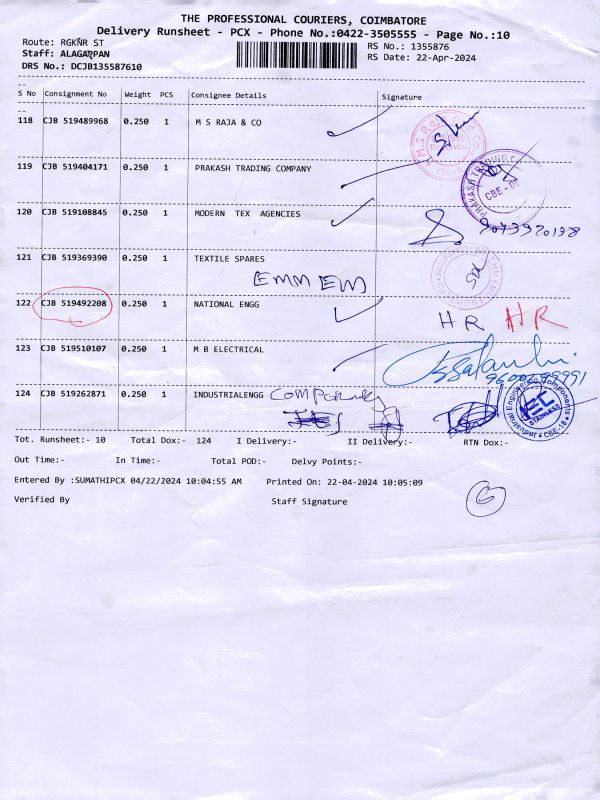 THE PROFESSIONAL COURIERS, COIMBATORE
Delivery Runsheet - PCX - Phone No.:0422-3505555 - Page No.:10
Route: RGKNR ST
RS No.: 1355876
Staff: ALAGARPAN
RS Date: 22-Apr-2024
DRS No.: DCJB135587610
S No Consignment No Weight PCS Consignee Details Signature
118 CJB 519489968 0.250 1 M S RAJA & CO
119 CJB 519404171 0.250 1 PRAKASH TRADING COMPANY
PRAKASH TRADING
CBE
120 CJB 519108845 0.250 1 MODERN TEX AGENCIES
121 CJB 519369390 0.250 1 TEXTILE SPARES
EMM EM
122 CJB 519492208 0.250 1 NATIONAL ENGG
HR HR
123 CJB 519510107 0.250 1 M B ELECTRICAL
124 CJB 519262871 0.250 1 INDUSTRIALENGG
Industrial Engineering Components
IEC
STAINLESS
CBE-18
Tot. Runsheet:- 10 Total Dox:- 124 I Delivery:- II Delivery:- RTN Dox:-
Out Time:- In Time:- Total POD:- Delvy Points:-
Entered By :SUMATHIPCX 04/22/2024 10:04:55 AM Printed On: 22-04-2024 10:05:09
Verified By Staff Signature